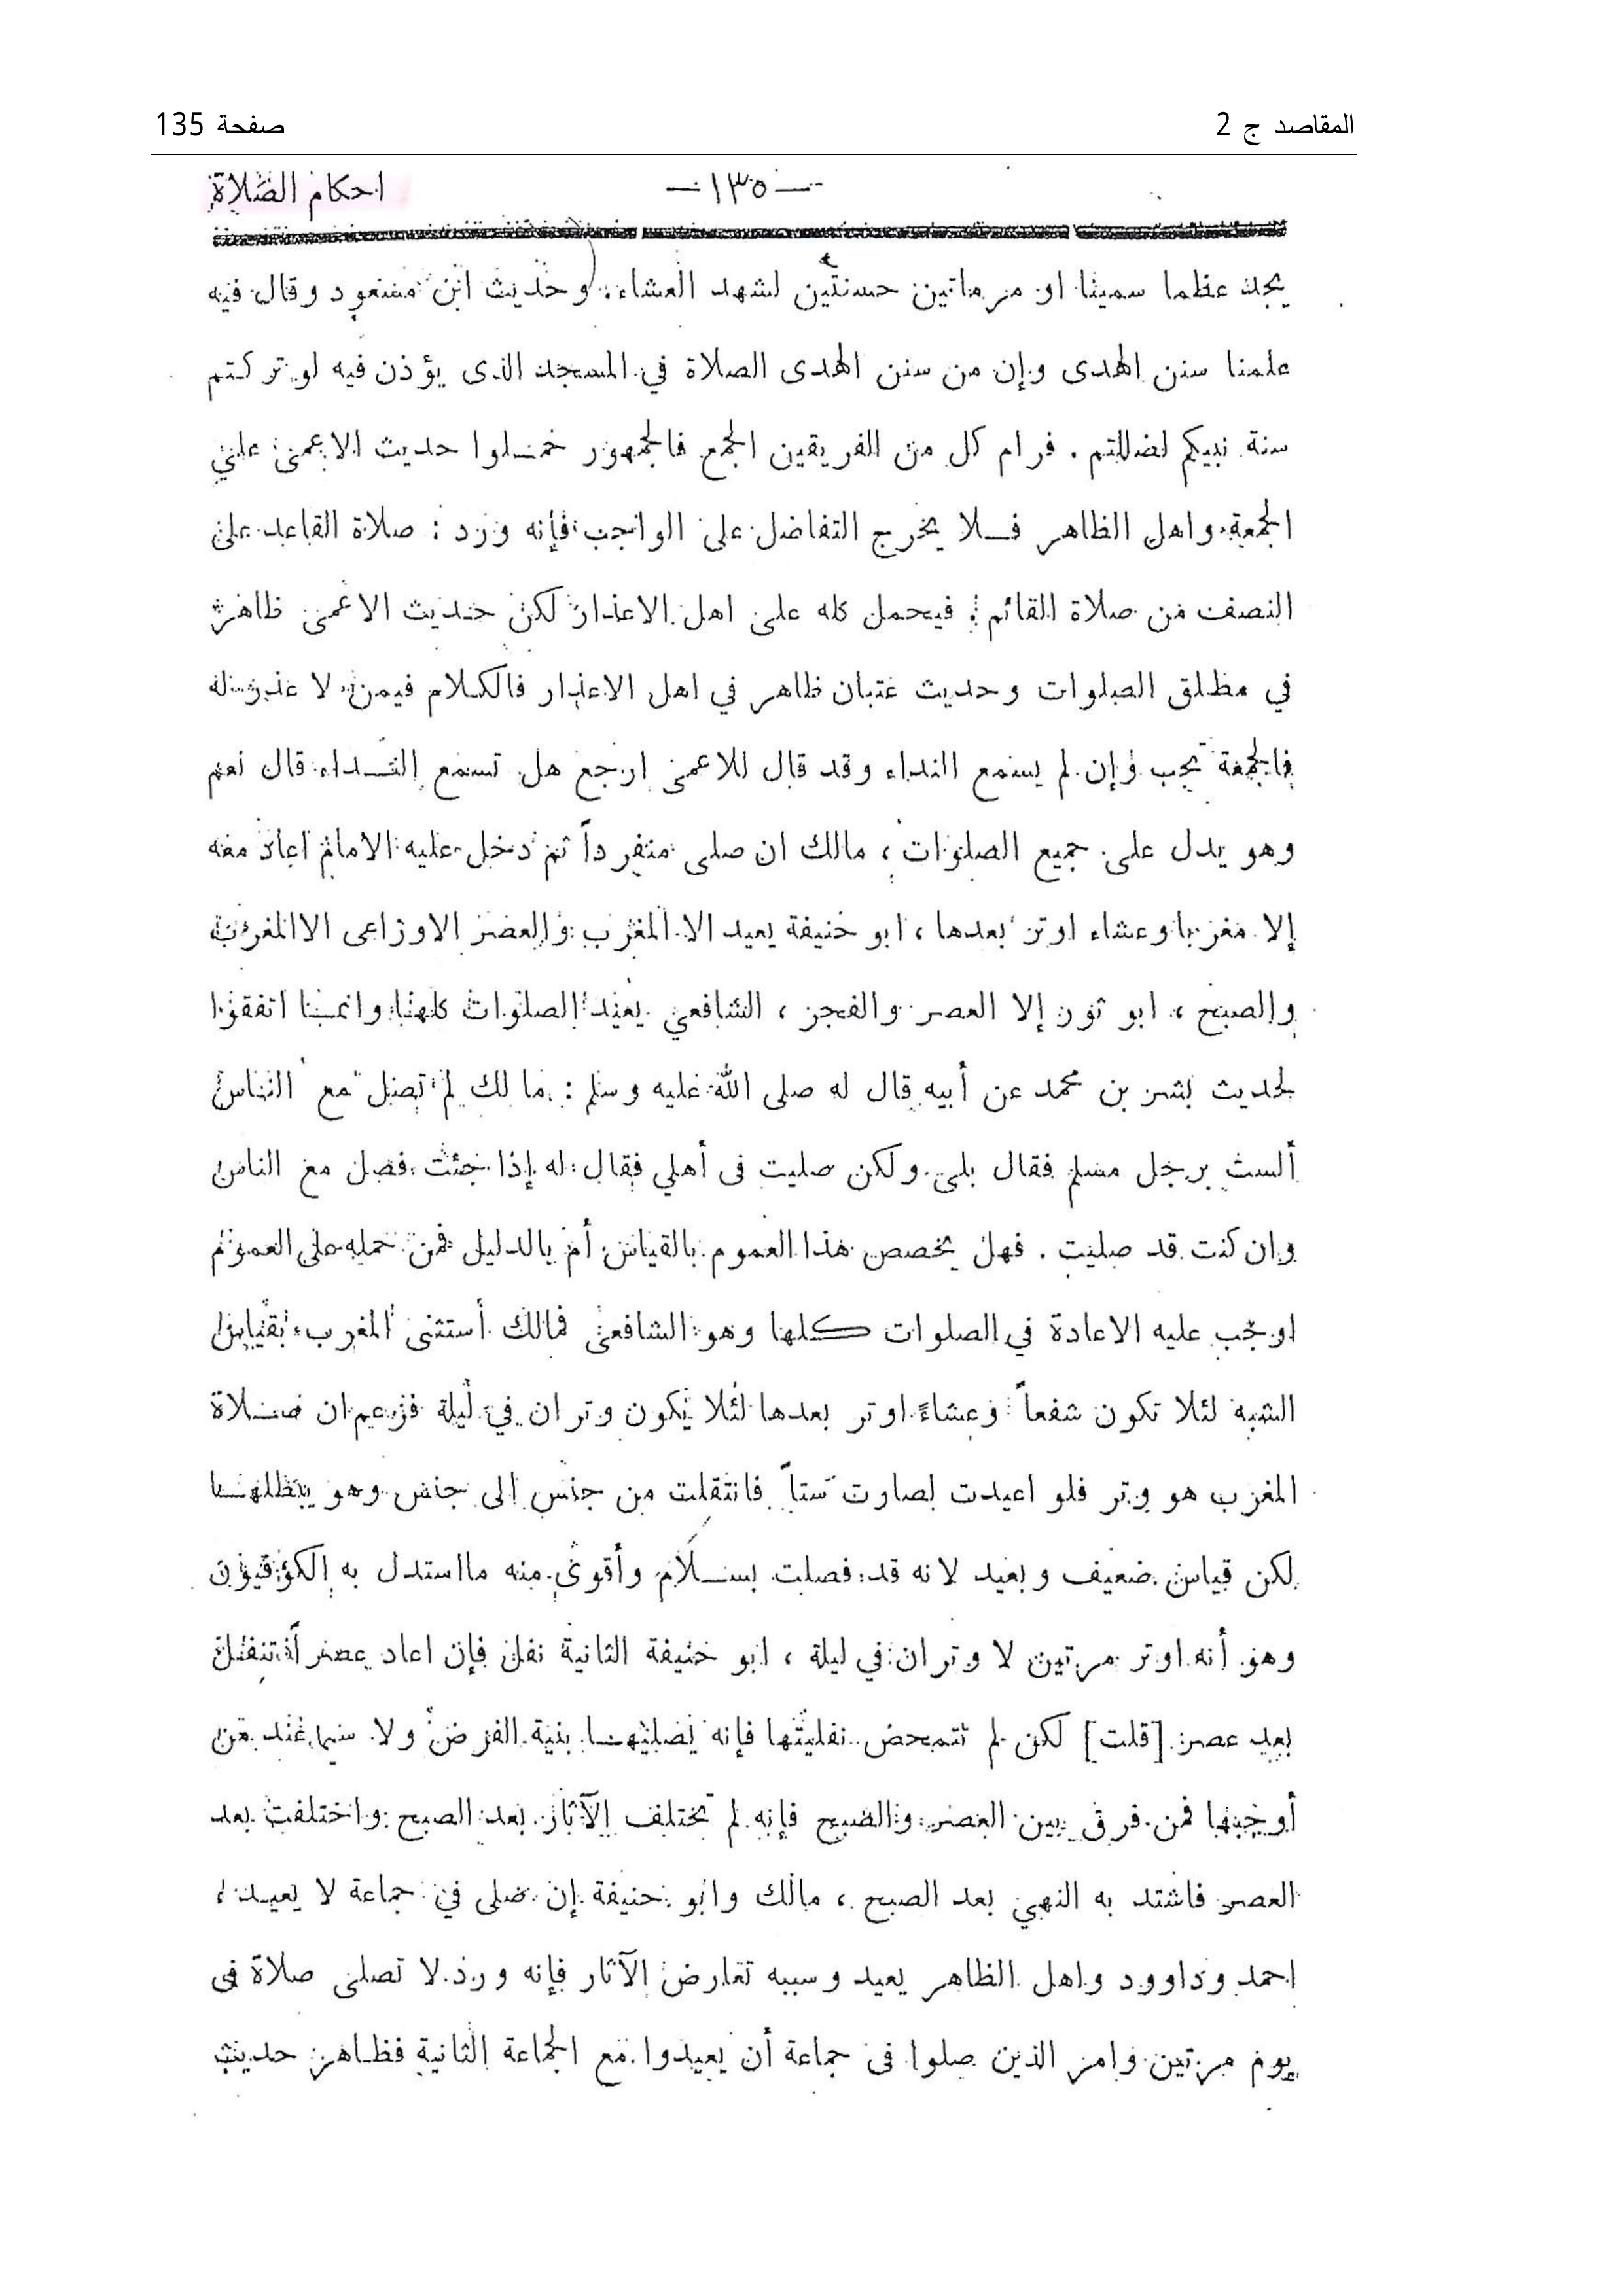 المقاصد ج 2 صفحة 135
احكام الصلاة —١٣٥—
يجد عظما سمينا او مرماتين حسنتين لشهد العشاء، وحديث ابن مسعود وقال فيه
علمنا سنن الهدى وإن من سنن الهدى الصلاة في المسجد الذى يؤذن فيه لو تركتم
سنة نبيكم لضللتم . فرام كل من الفريقين الجمع فالجمهور حملوا حديث الاعمى على
الجمعة واهل الظاهر فلا يخرج التفاضل على الواجب فإنه ورد : صلاة القاعد على
النصف من صلاة القائم : فيحمل كله على اهل الاعذار لكن حديث الاعمى ظاهر
في مطلق الصلوات وحديث عتبان ظاهر في اهل الاعذار فالكلام فيمن لا عذر له
فالجمعة تجب وإن لم يسمع النداء وقد قال للاعمى ارجع هل تسمع النداء قال نعم
وهو يدل على جميع الصلوات ، مالك ان صلى منفرداً ثم دخل عليه الامام اعاد معه
إلا مغربا وعشاء اوتر بعدها ، ابو حنيفة يعيد الا المغرب والعصر الاوزاعى الا المغرب
والصبح ، ابو ثور إلا العصر والفجر ، الشافعي يعيد الصلوات كلها وانما اتفقوا
لحديث بشر بن محمد عن أبيه قال له صلى الله عليه وسلم : ما لك لم تصل مع الناس
ألست برجل مسلم فقال بلى ولكن صليت فى أهلي فقال له إذا جئت فصل مع الناس
وان كنت قد صليت . فهل يخصص هذا العموم بالقياس أم بالدليل فمن حمله على العموم
اوجب عليه الاعادة في الصلوات كلها وهو الشافعى فمالك أستثنى المغرب بقياس
الشبه لئلا تكون شفعاً وعشاءً اوتر بعدها لئلا يكون وتران في ليلة فزعم ان صلاة
المغرب هو وتر فلو اعيدت لصارت ستاً فانتقلت من جنس الى جنس وهو يبطلها
لكن قياس ضعيف وبعيد لانه قد فصلت بسلام وأقوى منه ما استدل به الكوفيون
وهو أنه اوتر مرتين لا وتران في ليلة ، ابو حنيفة الثانية نفل فإن اعاد عصر أفتنفل
بعد عصر [قلت] لكن لم تتمحض نفليتها فإنه يصليها بنية الفرض ولا سيما عند من
أوجبها فمن فرق بين العصر والصبح فإنه لم تختلف الآثار بعد الصبح واختلفت بعد
العصر فاشتد به النهي بعد الصبح ، مالك وابو حنيفة إن صلى في جماعة لا يعيد ،
احمد وداوود واهل الظاهر يعيد وسببه تعارض الآثار فإنه ورد لا تصلى صلاة فى
يوم مرتين وامر الذين صلوا فى جماعة أن يعيدوا مع الجماعة الثانية فظاهر حديث